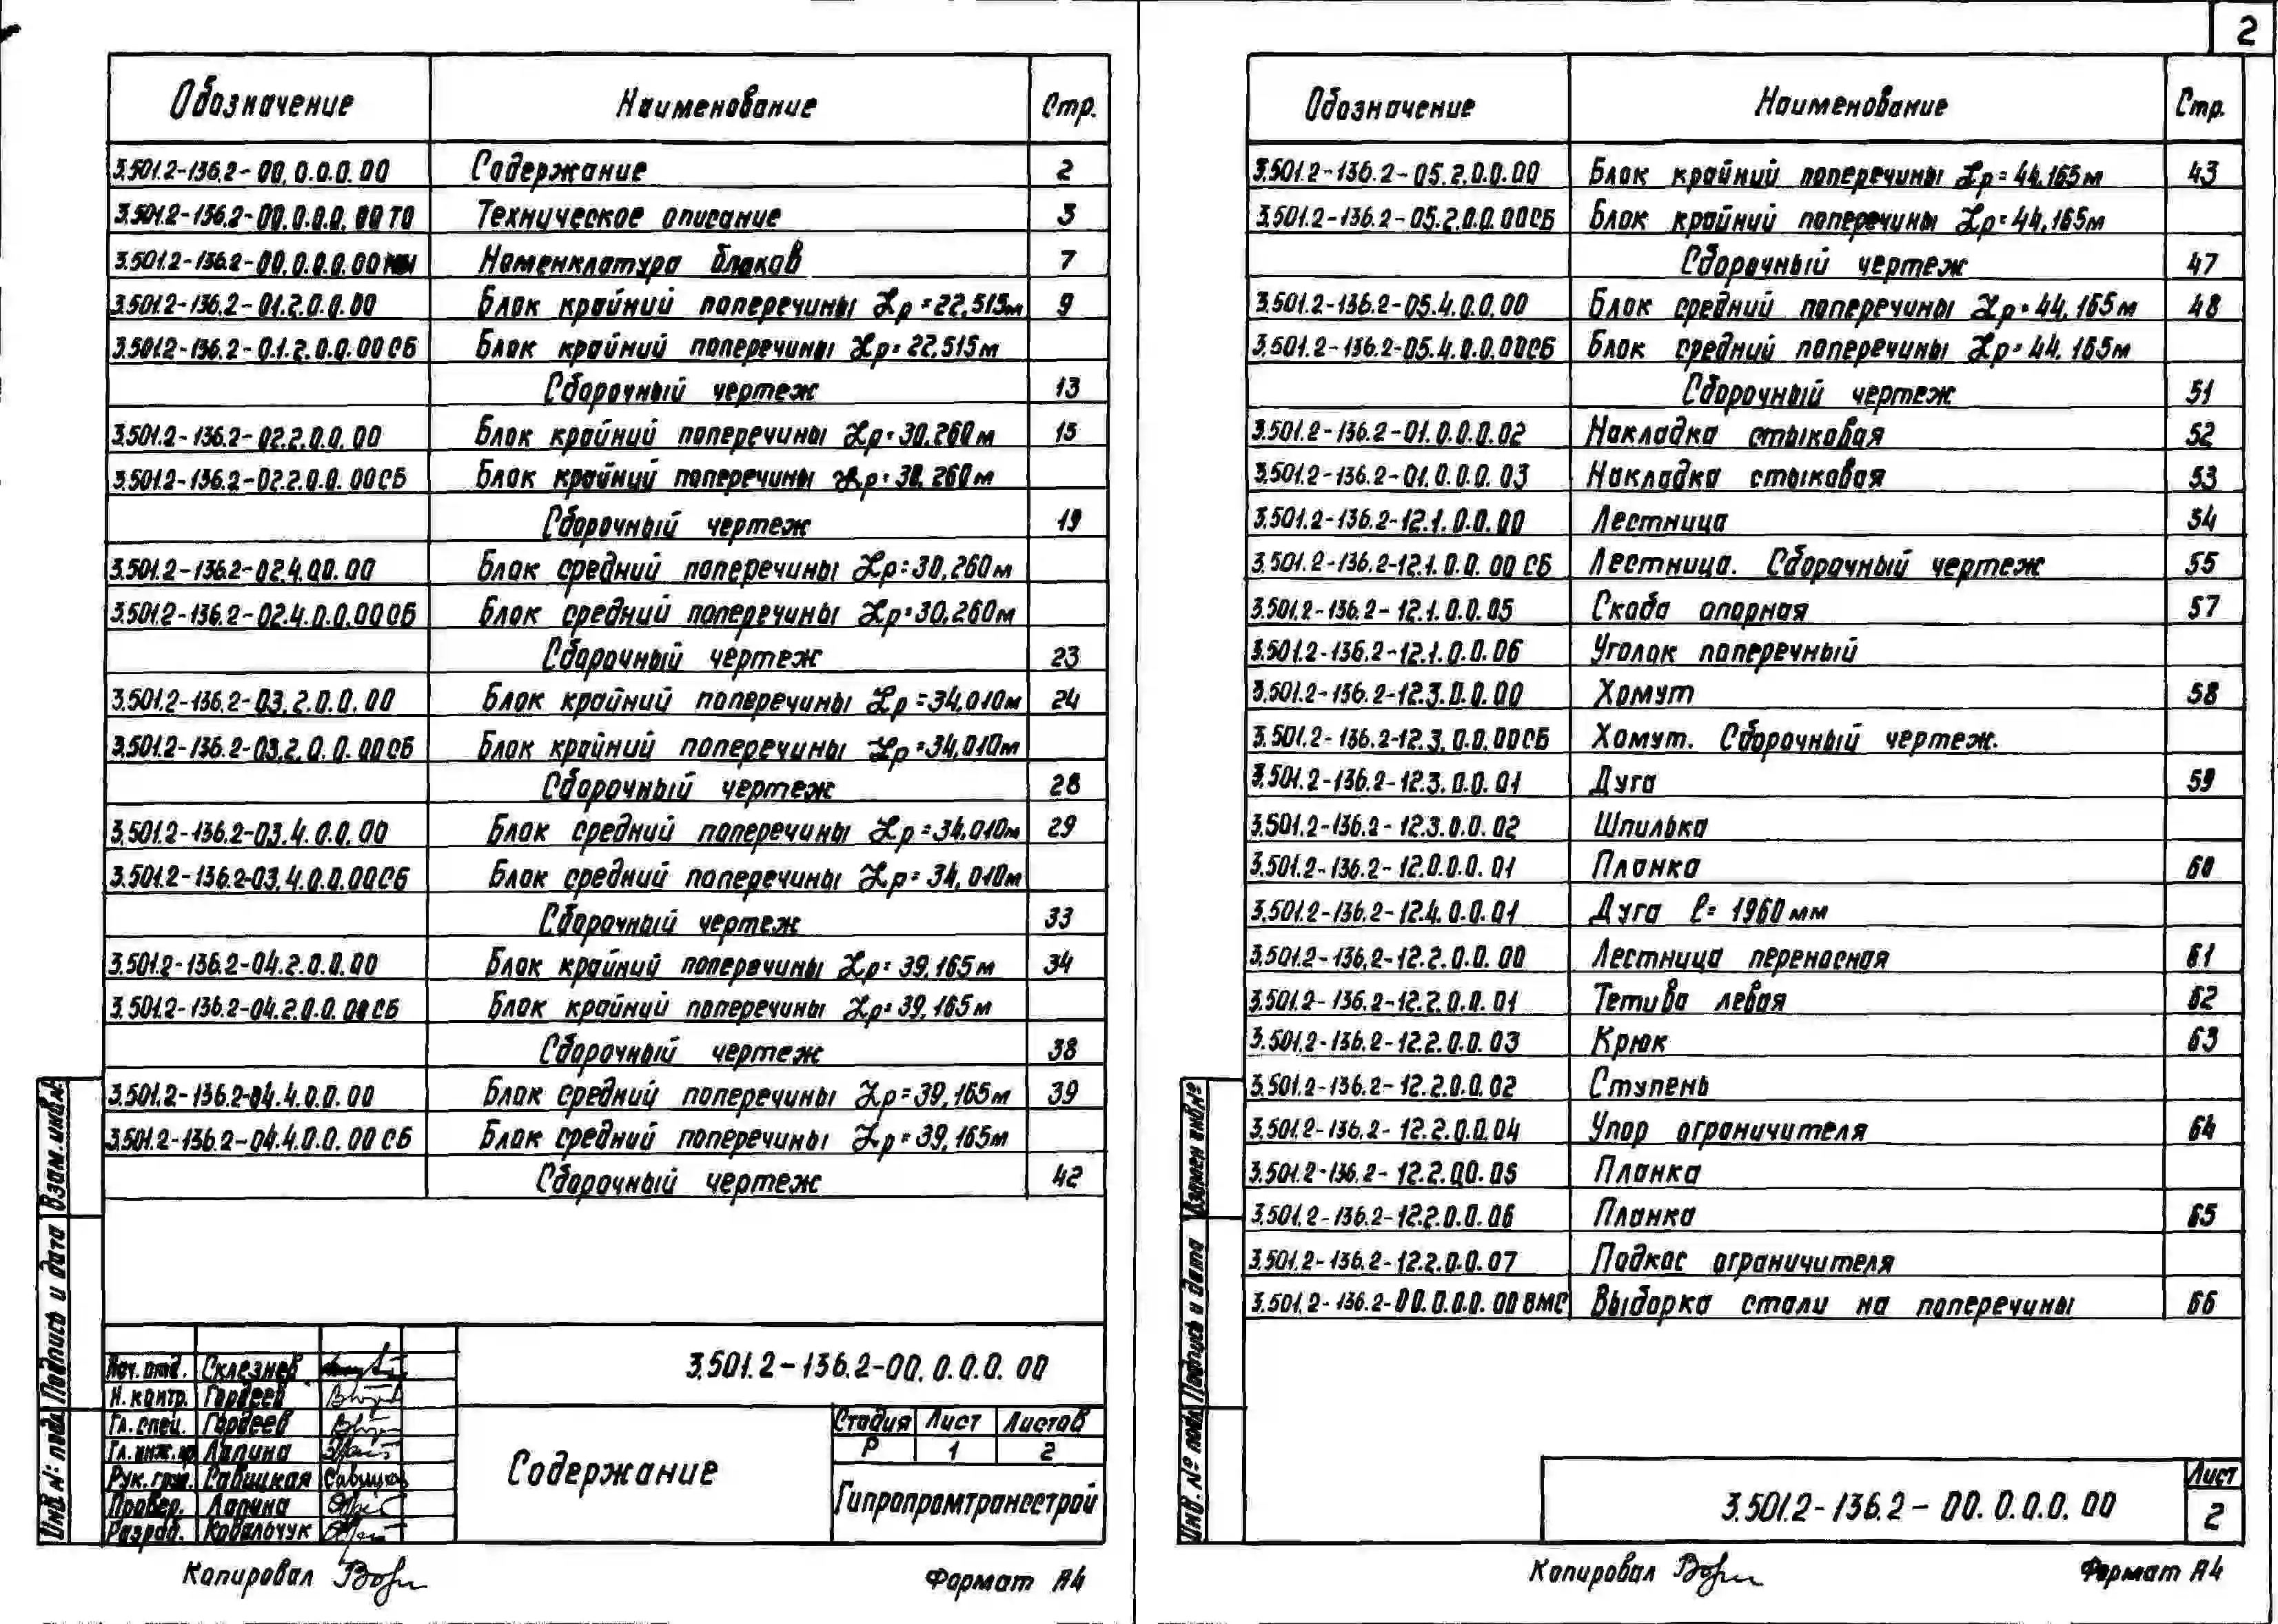 2
Обозначение Наименование Стр.
3.501.2-136.2-00.0.0.0.00 Содержание 2
3.501.2-136.2-00.0.0.0.00ТО Техническое описание 3
3.501.2-136.2-00.0.0.0.00НИ Номенклатура блоков 7
3.501.2-136.2-01.2.0.0.00 Блок крайний поперечины Lр=22,515м 9
3.501.2-136.2-01.2.0.0.00СБ Блок крайний поперечины Lр=22,515м
Сборочный чертеж 13
3.501.2-136.2-02.2.0.0.00 Блок крайний поперечины Lр=30,260м 15
3.501.2-136.2-02.2.0.0.00СБ Блок крайний поперечины Lр=30,260м
Сборочный чертеж 19
3.501.2-136.2-02.4.0.0.00 Блок средний поперечины Lр=30,260м
3.501.2-136.2-02.4.0.0.00СБ Блок средний поперечины Lр=30,260м
Сборочный чертеж 23
3.501.2-136.2-03.2.0.0.00 Блок крайний поперечины Lр=34,010м 24
3.501.2-136.2-03.2.0.0.00СБ Блок крайний поперечины Lр=34,010м
Сборочный чертеж 28
3.501.2-136.2-03.4.0.0.00 Блок средний поперечины Lр=34,010м 29
3.501.2-136.2-03.4.0.0.00СБ Блок средний поперечины Lр=34,010м
Сборочный чертеж 33
3.501.2-136.2-04.2.0.0.00 Блок крайний поперечины Lр=39,165м 34
3.501.2-136.2-04.2.0.0.00СБ Блок крайний поперечины Lр=39,165м
Сборочный чертеж 38
3.501.2-136.2-04.4.0.0.00 Блок средний поперечины Lр=39,165м 39
3.501.2-136.2-04.4.0.0.00СБ Блок средний поперечины Lр=39,165м
Сборочный чертеж 42
Нач.отд. Склезнев
Н.контр. Гордеев
Гл.спец. Гордеев
Гл.инж.пр Лапина
Рук.груп. Савицкая Савицкая
Провер. Лапина
Разраб. Ковальчук
3.501.2-136.2-00.0.0.0.00
Содержание
Стадия Лист Листов
Р 1 2
Гипропромтрансстрой
Инв.№ подл. Подпись и дата Взам.инв.№
Копировал Формат А4
Обозначение Наименование Стр.
3.501.2-136.2-05.2.0.0.00 Блок крайний поперечины Lр=44,165м 43
3.501.2-136.2-05.2.0.0.00СБ Блок крайний поперечины Lр=44,165м
Сборочный чертеж 47
3.501.2-136.2-05.4.0.0.00 Блок средний поперечины Lр=44,165м 48
3.501.2-136.2-05.4.0.0.00СБ Блок средний поперечины Lр=44,165м
Сборочный чертеж 51
3.501.2-136.2-01.0.0.0.02 Накладка стыковая 52
3.501.2-136.2-01.0.0.0.03 Накладка стыковая 53
3.501.2-136.2-12.1.0.0.00 Лестница 54
3.501.2-136.2-12.1.0.0.00СБ Лестница. Сборочный чертеж 55
3.501.2-136.2-12.1.0.0.05 Скоба опорная 57
3.501.2-136.2-12.1.0.0.06 Уголок поперечный
3.501.2-136.2-12.3.0.0.00 Хомут 58
3.501.2-136.2-12.3.0.0.00СБ Хомут. Сборочный чертеж.
3.501.2-136.2-12.3.0.0.01 Дуга 59
3.501.2-136.2-12.3.0.0.02 Шпилька
3.501.2-136.2-12.0.0.0.01 Планка 60
3.501.2-136.2-12.4.0.0.01 Дуга l=1960мм
3.501.2-136.2-12.2.0.0.00 Лестница переносная 61
3.501.2-136.2-12.2.0.0.01 Тетива левая 62
3.501.2-136.2-12.2.0.0.03 Крюк 63
3.501.2-136.2-12.2.0.0.02 Ступень
3.501.2-136.2-12.2.0.0.04 Упор ограничителя 64
3.501.2-136.2-12.2.0.0.05 Планка
3.501.2-136.2-12.2.0.0.06 Планка 65
3.501.2-136.2-12.2.0.0.07 Подкос ограничителя
3.501.2-136.2-00.0.0.0.00ВМС Выборка стали на поперечины 66
Инв.№ подл. Подпись и дата Взамен инв.№
3.501.2-136.2-00.0.0.0.00
Лист
2
Копировал Формат А4